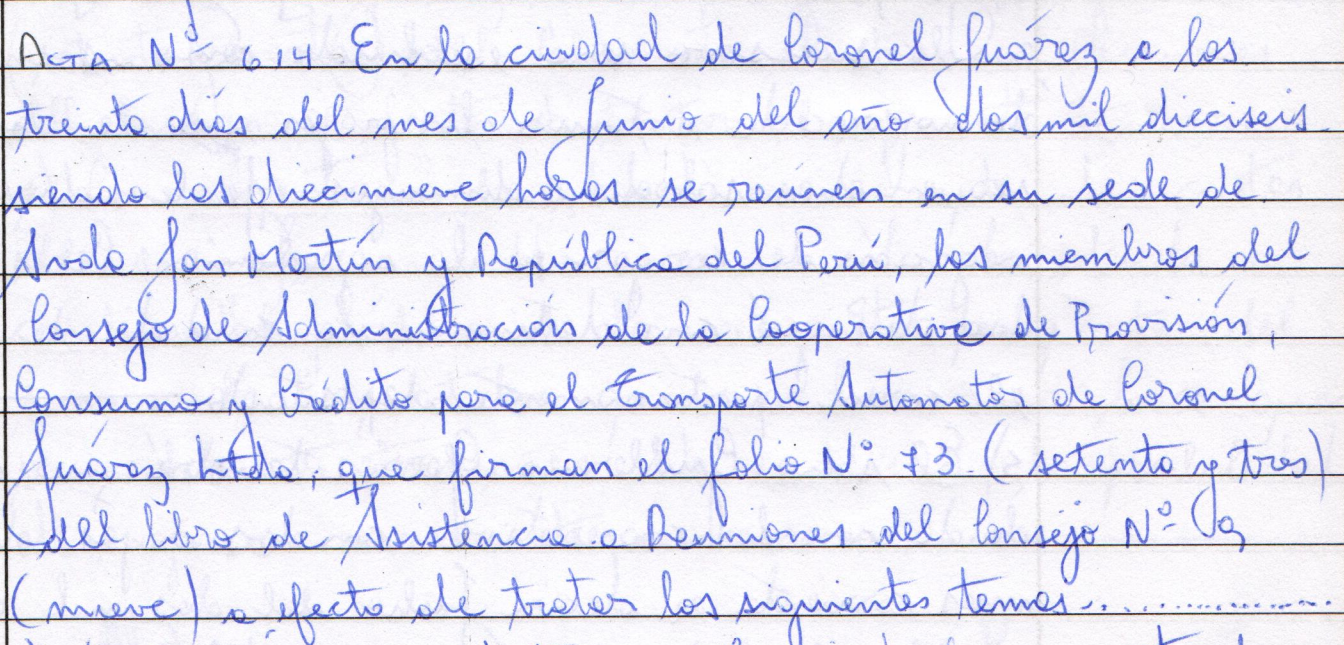 ACTA Nº 614 En la ciudad de Coronel Juárez a los
treinta días del mes de Junio del año dos mil dieciseis
siendo las diecinueve horas se reúnen en su sede de
Avda San Martín y República del Perú, los miembros del
Consejo de Administración de la Cooperativa de Provisión,
Consumo y Crédito para el Transporte Automotor de Coronel
Juárez Ltda, que firman el folio Nº 73 (setenta y tres)
del libro de Asistencia a Reuniones del Consejo Nº 9
(nueve) a efecto de tratar los siguientes temas..............